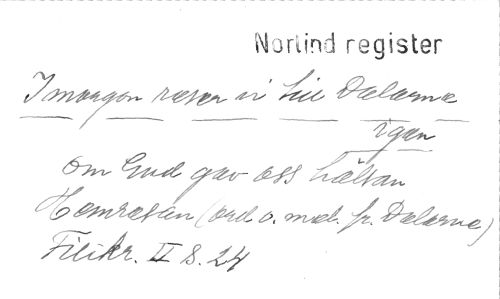 Norlind register
I morgon reser vi till Dalarna
igen
om Gud gav oss hälsan
Hemresan (ord o. mel. fr. Dalarna)
Filikr. II s. 24